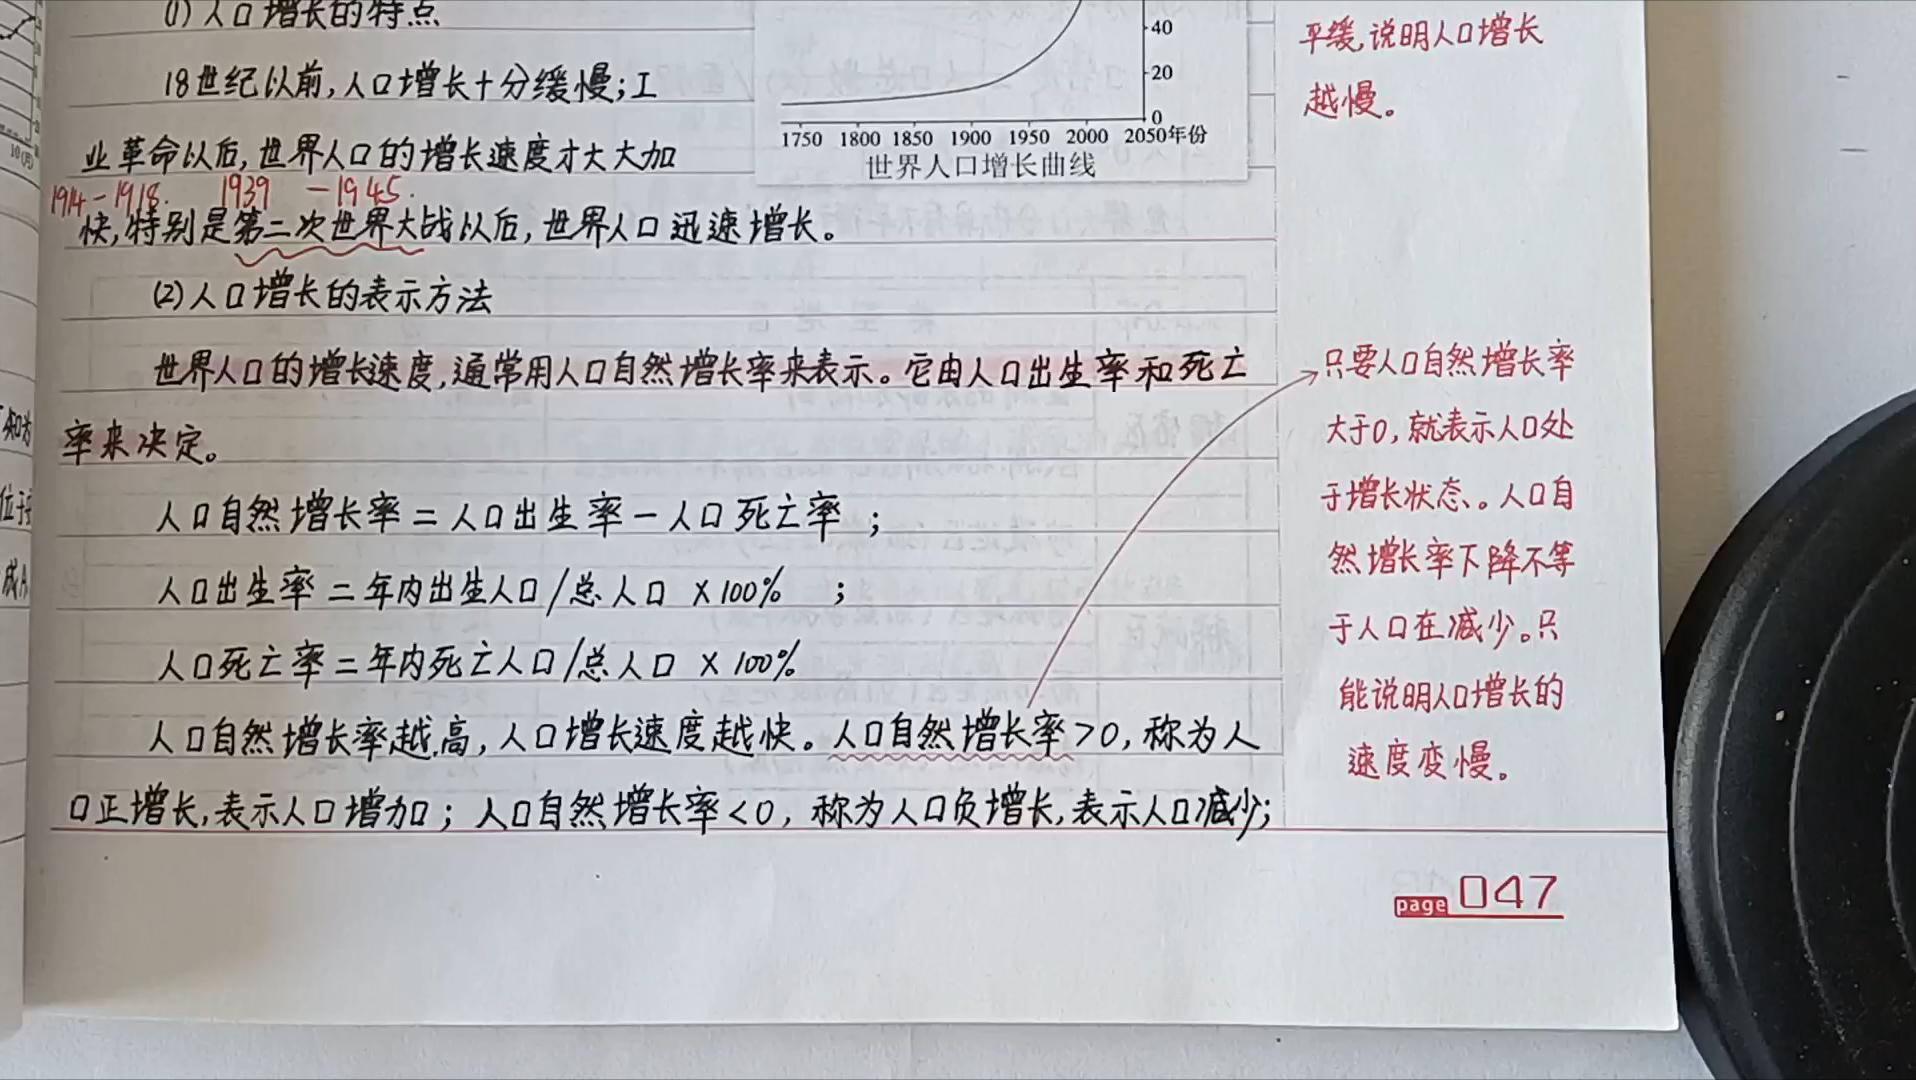 (1)人口增长的特点
18世纪以前,人口增长十分缓慢;工
业革命以后,世界人口的增长速度才大大加
1914-1918. 1939 -1945.
快,特别是第二次世界大战以后,世界人口迅速增长。
40
20
0
1750 1800 1850 1900 1950 2000 2050年份
世界人口增长曲线
(2)人口增长的表示方法
世界人口的增长速度,通常用人口自然增长率来表示。它由人口出生率和死亡
率来决定。
人口自然增长率=人口出生率-人口死亡率;
人口出生率=年内出生人口/总人口 ×100% ;
人口死亡率=年内死亡人口/总人口 ×100%
人口自然增长率越高,人口增长速度越快。人口自然增长率>0,称为人
口正增长,表示人口增加;人口自然增长率<0,称为人口负增长,表示人口减少;
平缓,说明人口增长
越慢。
只要人口自然增长率
大于0,就表示人口处
于增长状态、。人口自
然增长率下降不等
于人口在减少。只
能说明人口增长的
速度变慢。
page 047